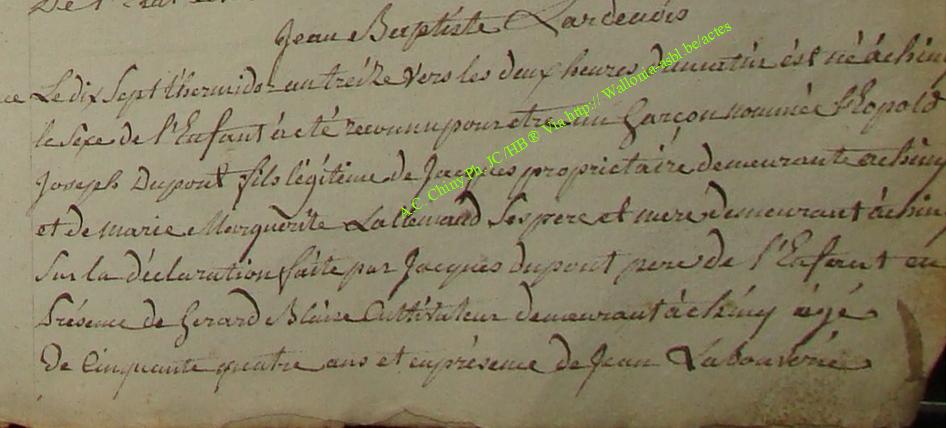 De l'
Jean Baptiste Lardenois
Le dix Sept thermidor an treize vers les deux heures du matin est né à chiny
le sexe de l'Enfant à été reconnu pour etre un Garçon nommée Léopold
Joseph Dupont fils légitime de Jacques propriétaire demeurante a chiny
et de marie Marguerite Lallemand Ses pere et mere demeurant à chiny
Sur la déclaration faite par Jacques dupont pere de l'Enfant en
Présence de Gerard Blaise Cultivateur demeurant à chiny agé
de Cinquante quatre ans et en présence de Jean Labouverie
A.C. Chiny Ph. JC /HB® Via http:// Wallonia-asbl.be/actes